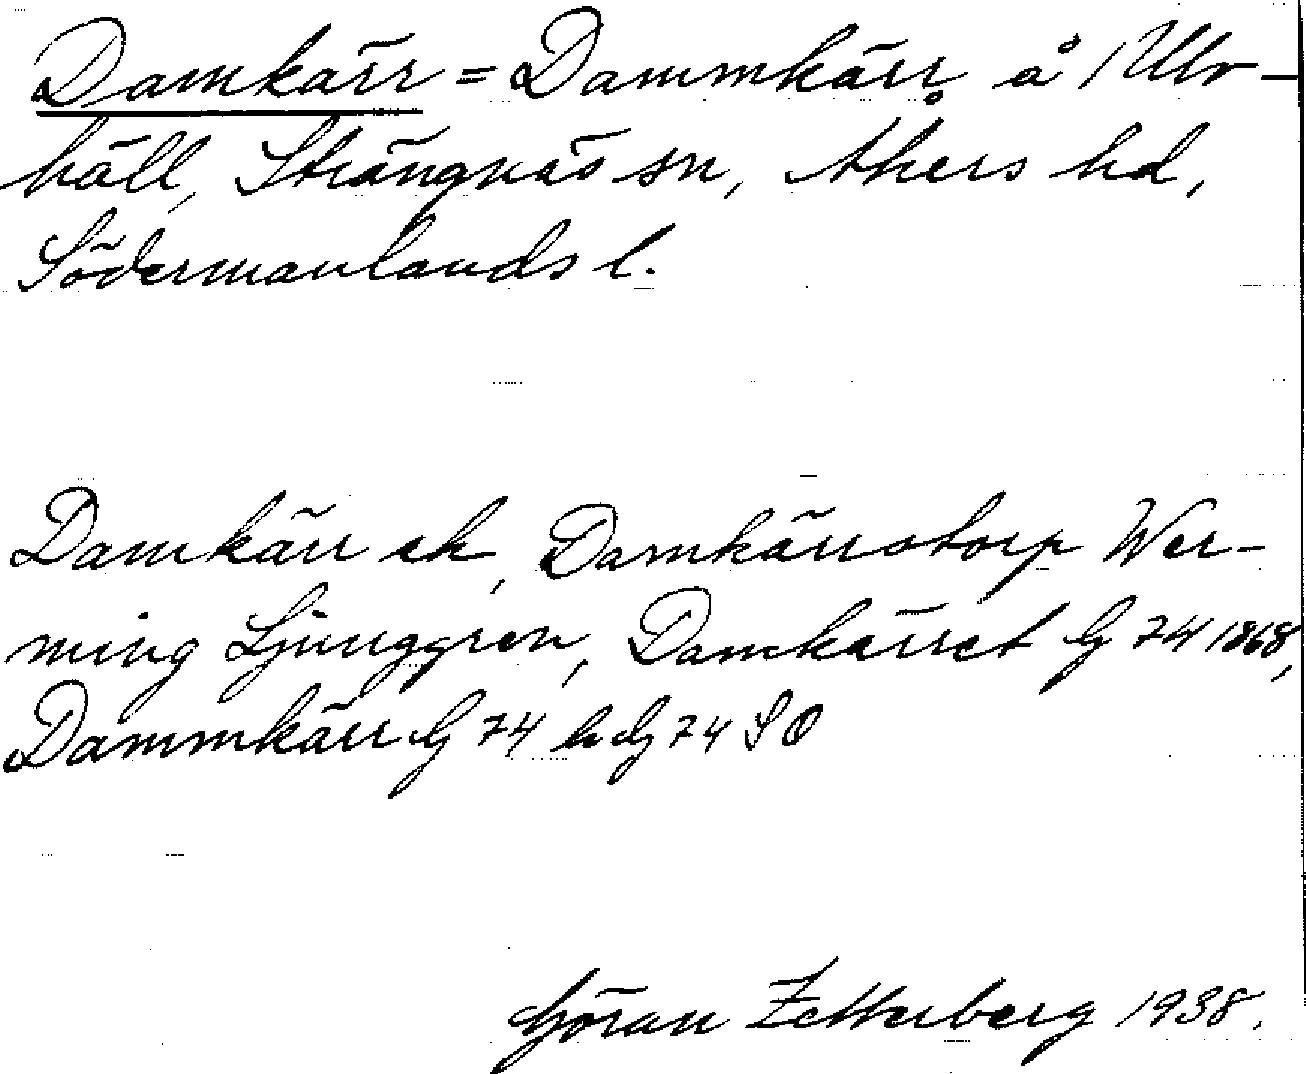 Damkärr = Dammkärr å Ulv-
häll, Strängnäs sn, Åkers hd,
Södermanlands l.
Damkärr ek, Damkärrstorp Wer-
ning Ljunggren, Damkärret G 74 1868,
Dammkärr G 74 h dg 74 SO
Göran Zetterberg 1938.